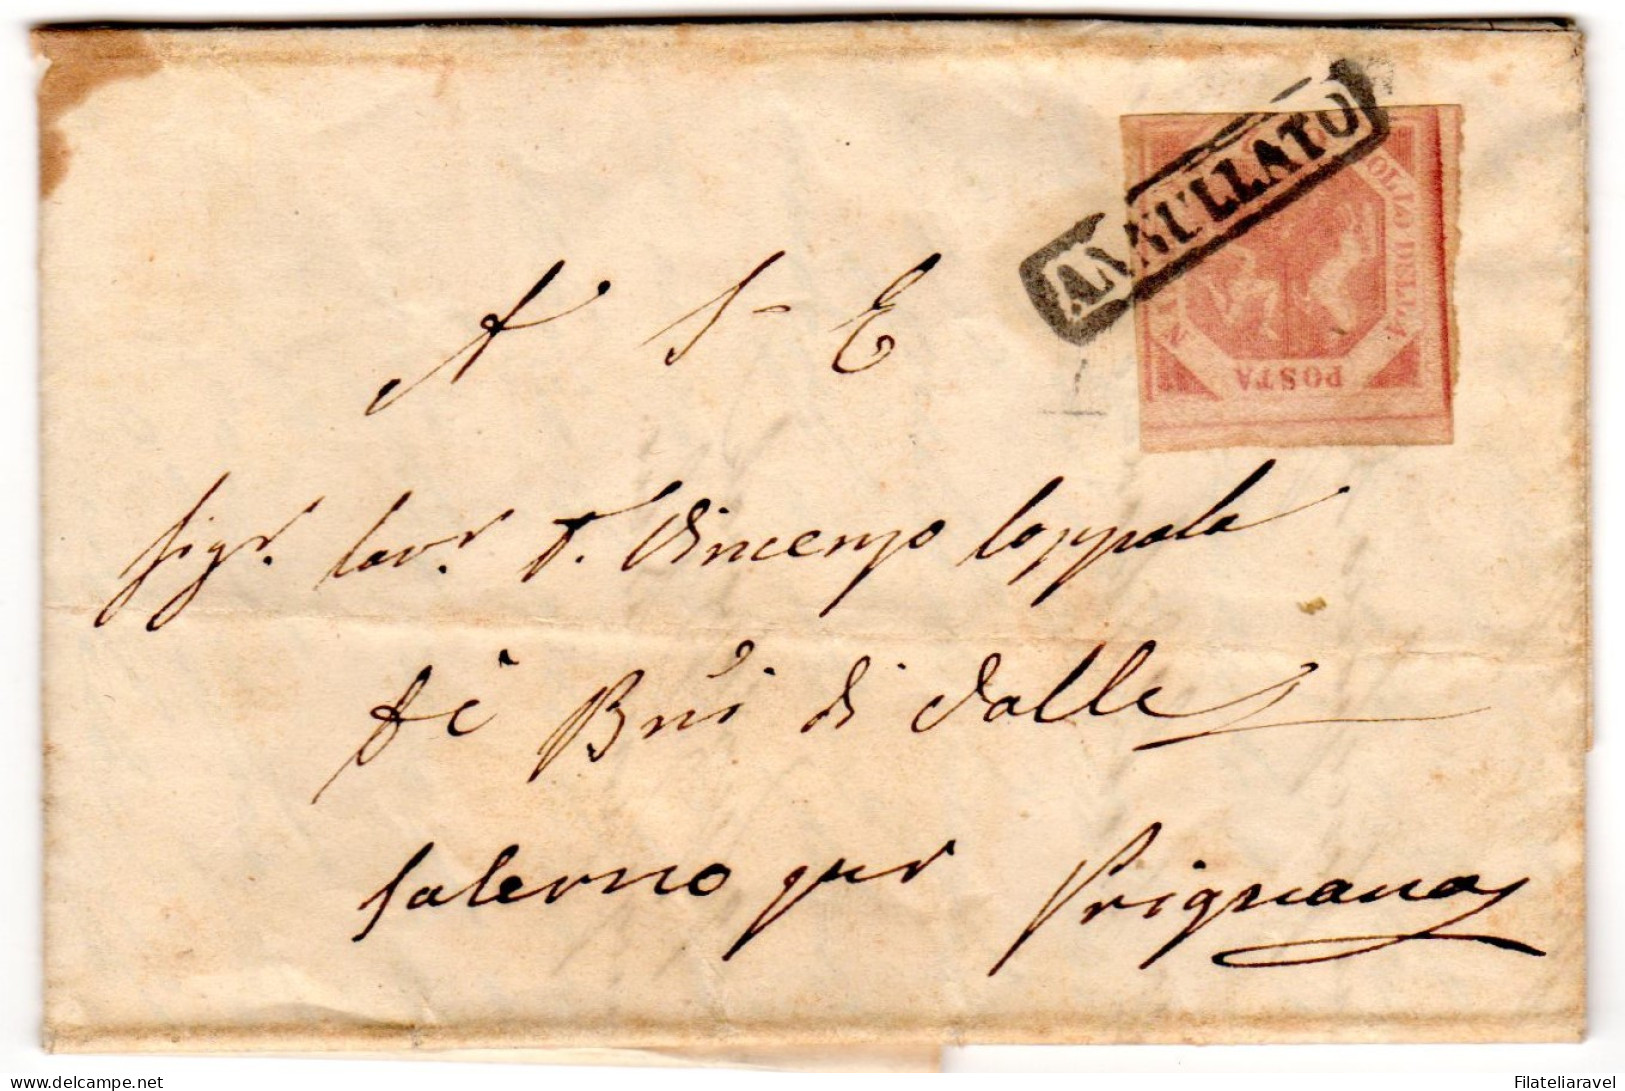 ANNULLATO
BOLLO DELLA
POSTA
N
A S. E.
Sigr. Cavr. D. Vincenzo Coppola
De' Bni di Valle
Salerno per Prignano
delcampe.net
Filateliaravel